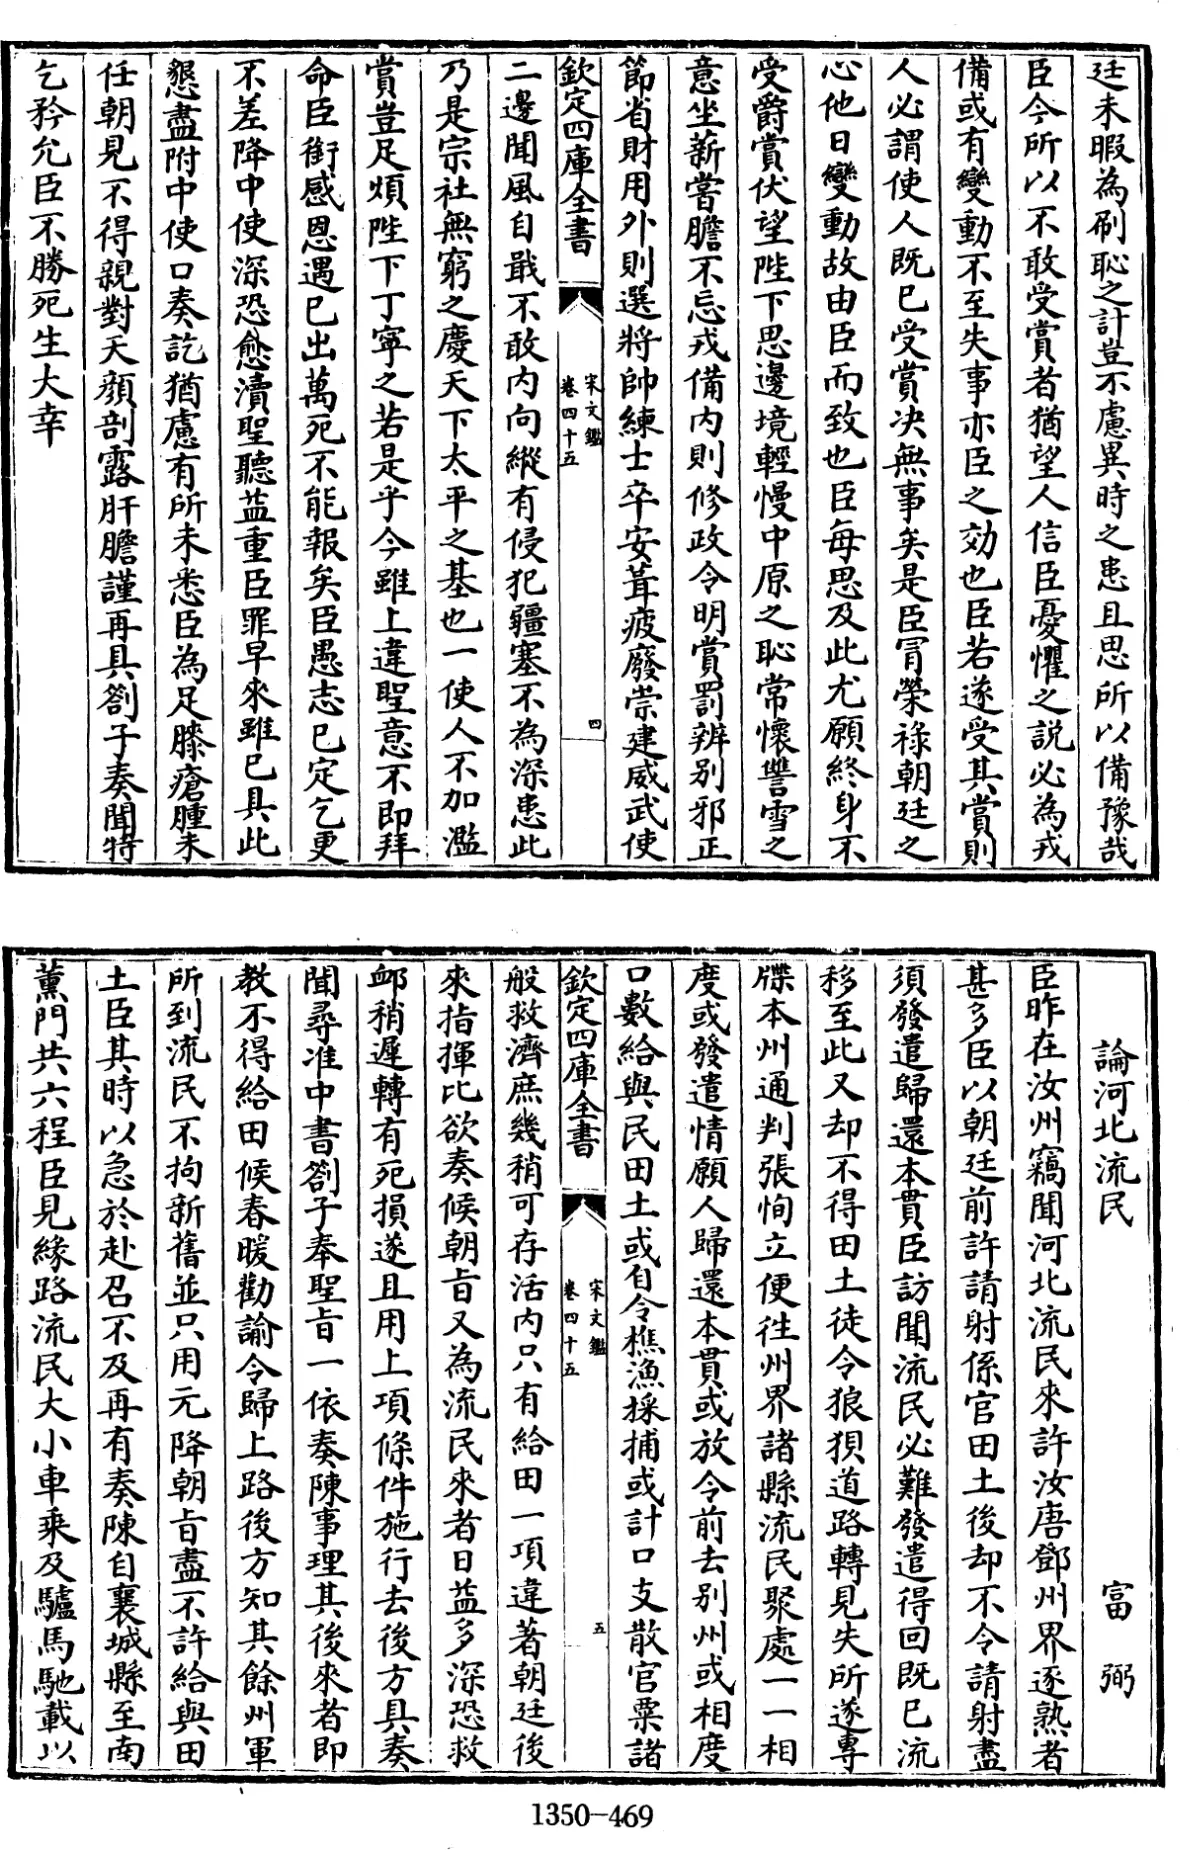 廷未暇為刷恥之計豈不慮異時之患且思所以備豫哉
臣今所以不敢受賞者猶望人信臣憂懼之説必為戎
備或有變動不至失事亦臣之効也臣若遂受其賞則
人必謂使人既已受賞决無事矣是臣冐榮祿朝廷之
心他日變動故由臣而致也臣每思及此尤願終身不
受爵賞伏望陛下思邊境輕慢中原之恥常懷讐雪之
意坐薪嘗膽不忘戎備内則修政令明賞罰辨别邪正
節省財用外則選將帥練士卒安葺疲廢崇建威武使
欽定四庫全書
宋文鑑
卷四十五
四
二邊聞風自戢不敢内向縱有侵犯疆塞不為深患此
乃是宗社無窮之慶天下太平之基也一使人不加濫
賞豈足煩陛下丁寧之若是乎今雖上違聖意不即拜
命臣銜感恩遇已出萬死不能報矣臣愚志已定乞更
不差降中使深恐愈瀆聖聽益重臣罪早來雖已具此
懇盡附中使口奏訖猶慮有所未悉臣為足膝瘡腫未
任朝見不得親對天顔剖露肝膽謹再具劄子奏聞特
乞矜允臣不勝死生大幸
論河北流民
富弼
臣昨在汝州竊聞河北流民來許汝唐鄧州界逐熟者
甚多臣以朝廷前許請射係官田土後却不令請射盡
須發遣歸還本貫臣訪聞流民必難發遣得回既已流
移至此又却不得田土徒令狼狽道路轉見失所遂專
牒本州通判張恂立便往州界諸縣流民聚處一一相
度或發遣情願人歸還本貫或放令前去别州或相度
口數給與民田土或自令樵漁採捕或計口支散官粟諸
欽定四庫全書
宋文鑑
卷四十五
五
般救濟庶幾稍可存活内只有給田一項違著朝廷後
來指揮比欲奏候朝㫖又為流民來者日益多深恐救
䘏稍遲轉有死損遂且用上項條件施行去後方具奏
聞尋准中書劄子奉聖㫖一依奏陳事理其後來者即
教不得給田候春暖勸諭令歸上路後方知其餘州軍
所到流民不拘新舊並只用元降朝㫖盡不許給與田
土臣其時以急於赴召不及再有奏陳自襄城縣至南
薫門共六程臣見緣路流民大小車乘及驢馬馳載以
1350-469